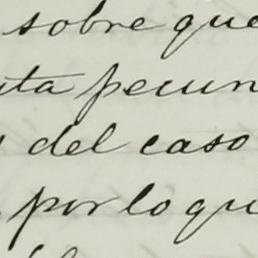 sobre que
ta pecun
del caso
por lo qu